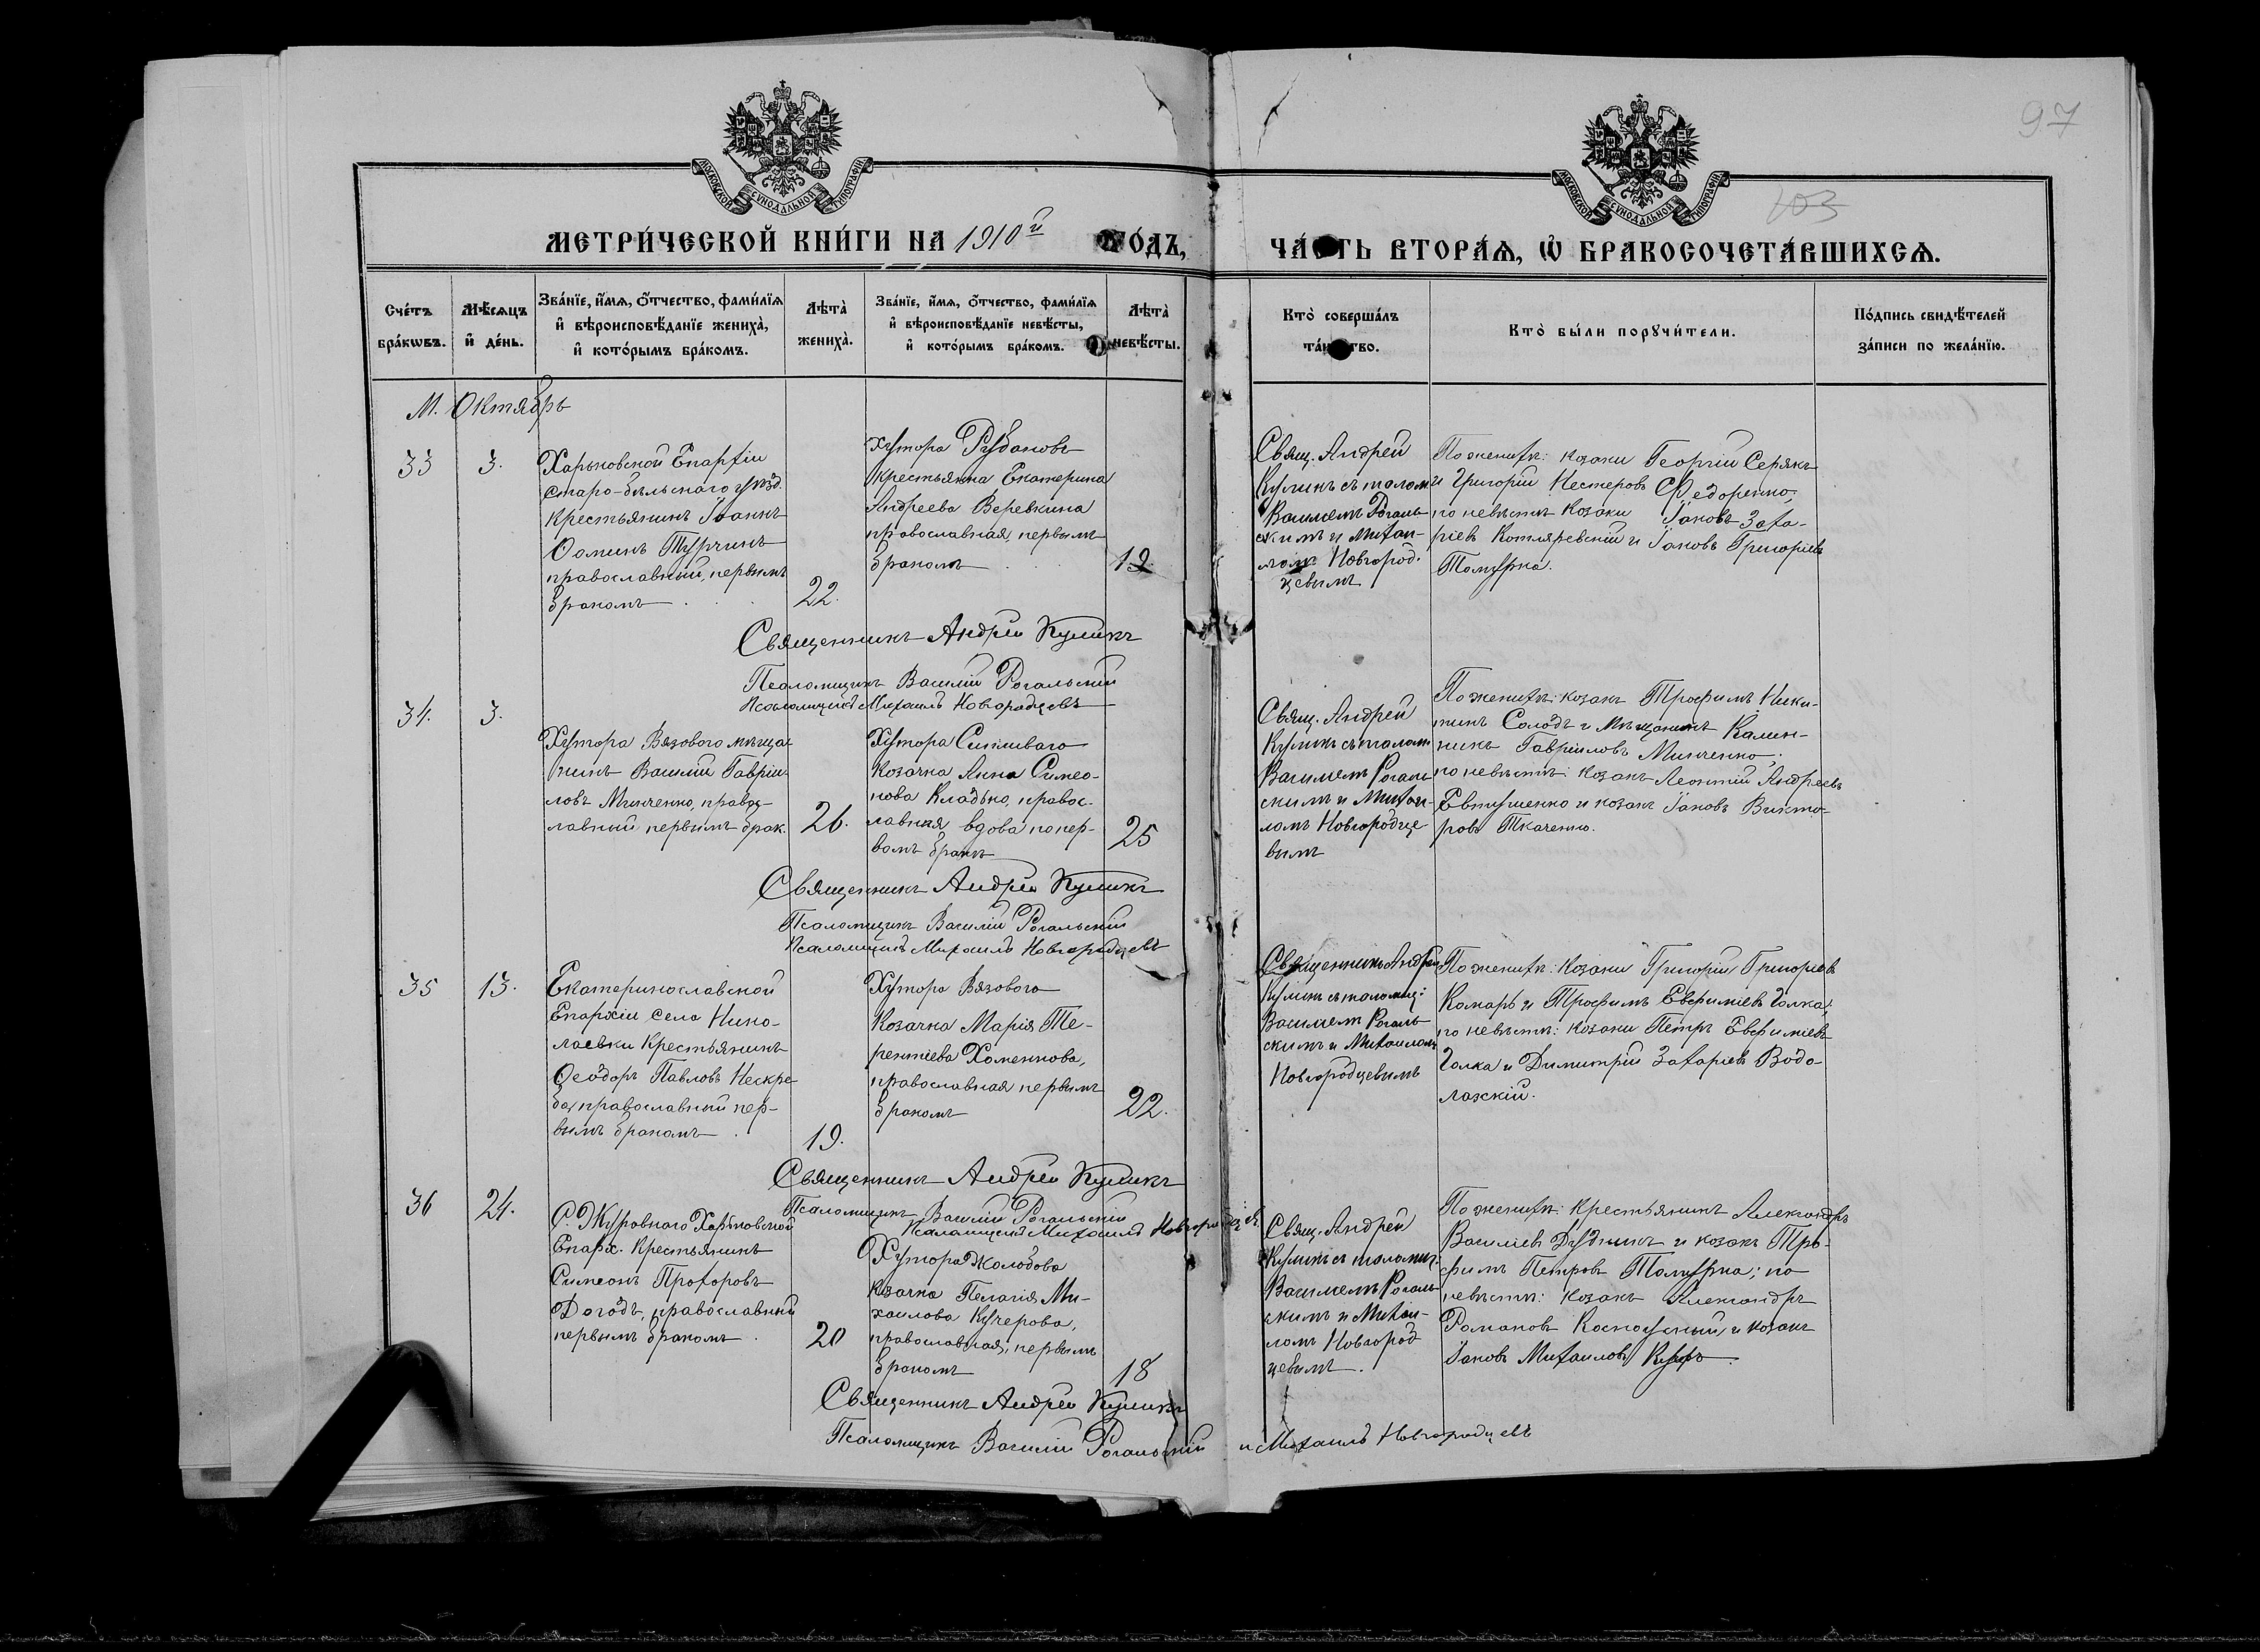 97
103
МОСКОВСКОЙ СѴНОДАЛЬНОЙ ТИПОГРАФІИ
МОСКОВСКОЙ СѴНОДАЛЬНОЙ ТИПОГРАФІИ
МЕТРИ́ЧЕСКОЙ КНИ́ГИ НА 1910й ГО́ДЪ,
ЧА́СТЬ ВТОРА́Ѧ, Ѡ БРАКОСОЧЕТА́ВШИХСѦ.
Сче́тъ бра́кѡвъ.
Мѣ́сѧцъ и де́нь.
Зва́нїе, и́мѧ, о́тчество, фами́лїѧ
и вѣроисповѣ́данїе жениха̀,
и кото́рымъ бра́комъ.
Лѣта̀ жениха̀.
Зва́нїе, и́мѧ, о́тчество, фами́лїѧ
и вѣроисповѣ́данїе невѣ́сты,
и кото́рымъ бра́комъ.
Лѣта̀ невѣ́сты.
Кто̀ соверша́лъ
та́инство.
Кто̀ бы́ли порꙋчи́тели.
По́дпись свидѣ́телей
за́писи по жела́нїю.
М. Октябрь
33
3.
Харьковской Епархіи
Старо-бѣльскаго уѣзд.
Крестьянинъ Іоаннъ
Ѳоминъ Турчинъ
православный, первымъ
бракомъ
22.
хутора Рубановъ
Крестьянка Екатерина
Андреева Веревкина
православная, первымъ
бракомъ
19.
Свящ. Андрей
Куликъ съ псалом.
Василіемъ Рогаль-
скимъ и Михаи-
ломъ Новгород-
цевымъ
По женихѣ: козаки Георгій Серякъ
и Григорій Нестеровъ Федоренко;
по невѣстѣ козаки Іаковъ Заха-
ріевъ Котляревскій и Іаковъ Григоріевъ
Священникъ Андрей Куликъ
Псаломщикъ Василій Рогальскій
Псаломщикъ Михаилъ Новгородцевъ
34.
3.
Хутора Вязового мѣща-
нинъ Василій Гаврiи-
ловъ Минченко, правос-
лавный первымъ брак.
26.
Козачка Анна Симео-
нова Кладько, правос-
лавная вдова по пер-
вомъ бракѣ
25
Свящ. Андрей
Куликъ съ псалом.
Василіемъ Рогаль-
скимъ и Михаи-
ломъ Новгородце-
вымъ
По женихѣ: козакъ Трофимъ Ники-
тинъ Солодъ и мѣщанинъ Калин-
никъ Гавріиловъ Минченко;
по невѣстѣ: козакъ Леонтій Андреевъ
Евтушенко и козакъ Іаковъ Викто-
ровъ Ткаченко.
Священникъ Андрей Куликъ
Псаломщикъ Василій Рогальскій
Псаломщикъ Михаилъ Новгородцевъ
35
13.
Екатеринославской
Епархіи села Нико-
лаевки Крестьянинъ
Ѳеодоръ Павловъ Нескре-
ба, православный пер-
вымъ бракомъ
19.
Хутора Вязового
Козачка Марія Те-
рентіева Хоменкова,
православная первымъ
бракомъ
22.
Священникъ Андрей
Куликъ съ псаломщ:
Василіемъ Рогаль-
скимъ и Михаиломъ
Новгородцевымъ
По женихѣ: Козаки Григорій Григоріевъ
Комаръ и Трофимъ Евфиміевъ Галка;
по невѣстѣ: козаки Петръ Евфиміевъ
Галка и Димитрій Захаріевъ Водо-
лазскій.
Священникъ Андрей Куликъ
Псаломщикъ Василій Рогальскій
Псаломщикъ Михаилъ Новгородцевъ
36
24.
С. Журавнаго Харьковской
Епарх. Крестьянинъ
Симеонъ Прохоровъ
Догодъ, православный
первымъ бракомъ
20
Хутора Жолобова
Козачка Пелагія Ми-
хаилова Кучерова,
православная, первымъ
бракомъ
18
Свящ. Андрей
Куликъ съ псаломщ.
Василіемъ Рогаль-
скимъ и Михаи-
ломъ Новгород-
цевымъ.
По женихѣ: Крестьянинъ Александръ
Василіевъ Дудникъ и козакъ Тро-
фимъ Петровъ; по
невѣстѣ: козакъ Александръ
Романовъ и козакъ
Іаковъ Михаиловъ
Священникъ Андрей Куликъ
Псаломщикъ Василій Рогальскій и Михаилъ Новгородцевъ